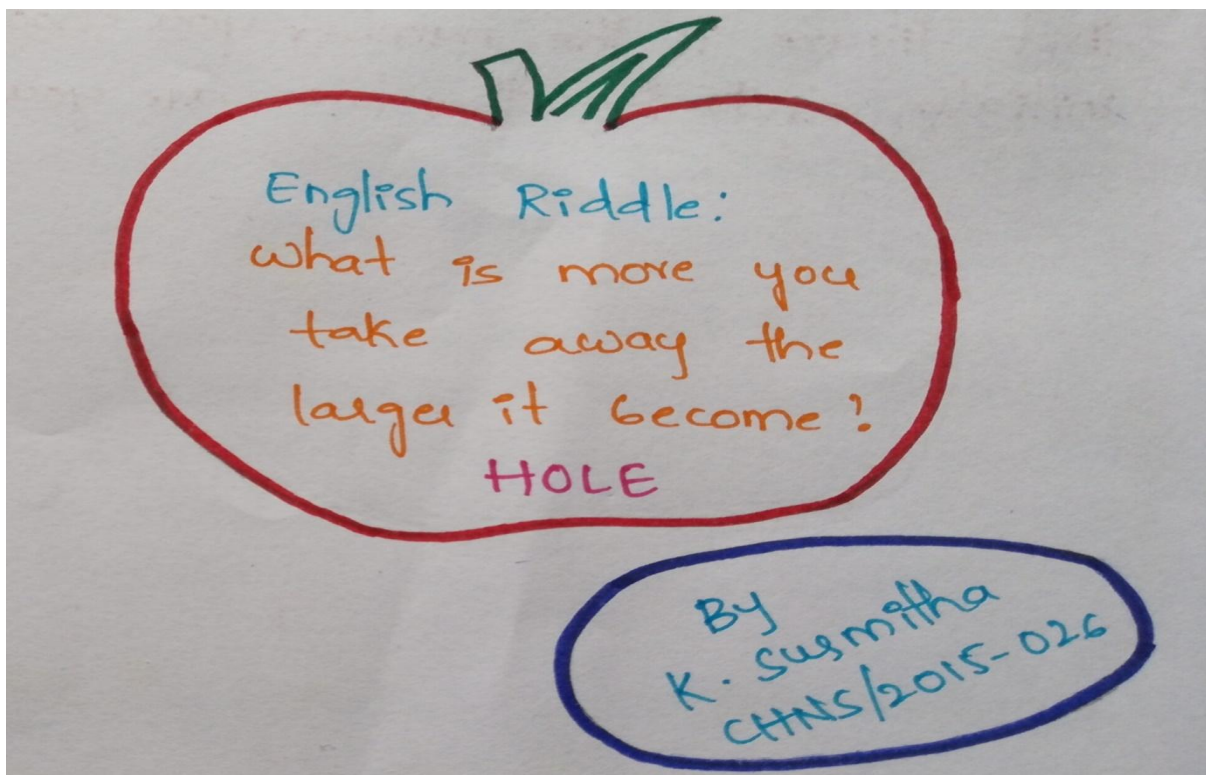 English Riddle:
What is more you
take away the
larger it become?
HOLE
By
K. Susmitha
CHNS/2015-026